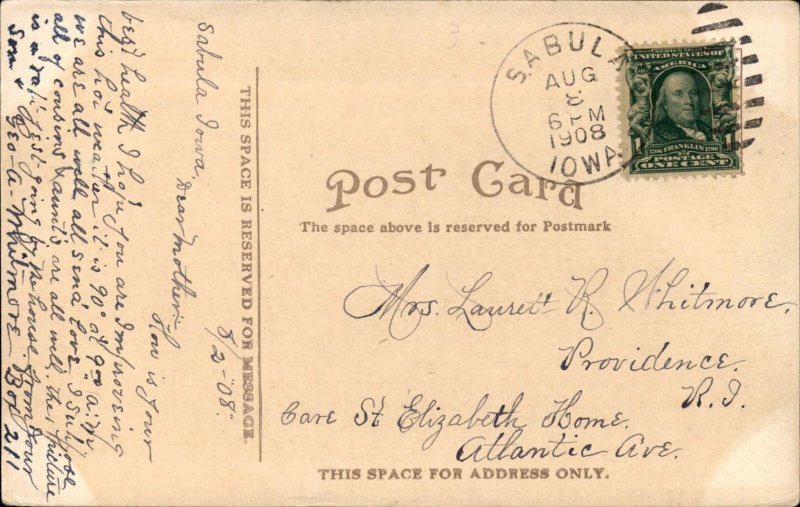 Sabula Iowa.
8/2-08.
Dear Mother:
How is your
best health I hope you are improving
this hot weather it is 90° at 9 00 a.m.
we are all well all send Love I suppose
all of cousins & aunts are all well. the picture
is a raft just going by the house. from your
Son & Geo-A. Whitmore Box 211
THIS SPACE IS RESERVED FOR MESSAGE.
SABULA
AUG
6 PM
1908
IOWA
SERIES 1902
UNITED STATES OF
AMERICA
1706 FRANKLIN 1790
1 1
POSTAGE
ONE CENT
Post Card
The space above is reserved for Postmark
Mrs. Laurett R. Whitmore.
Providence.
R.I.
Care St Elizabeth Home.
Atlantic Ave.
THIS SPACE FOR ADDRESS ONLY.